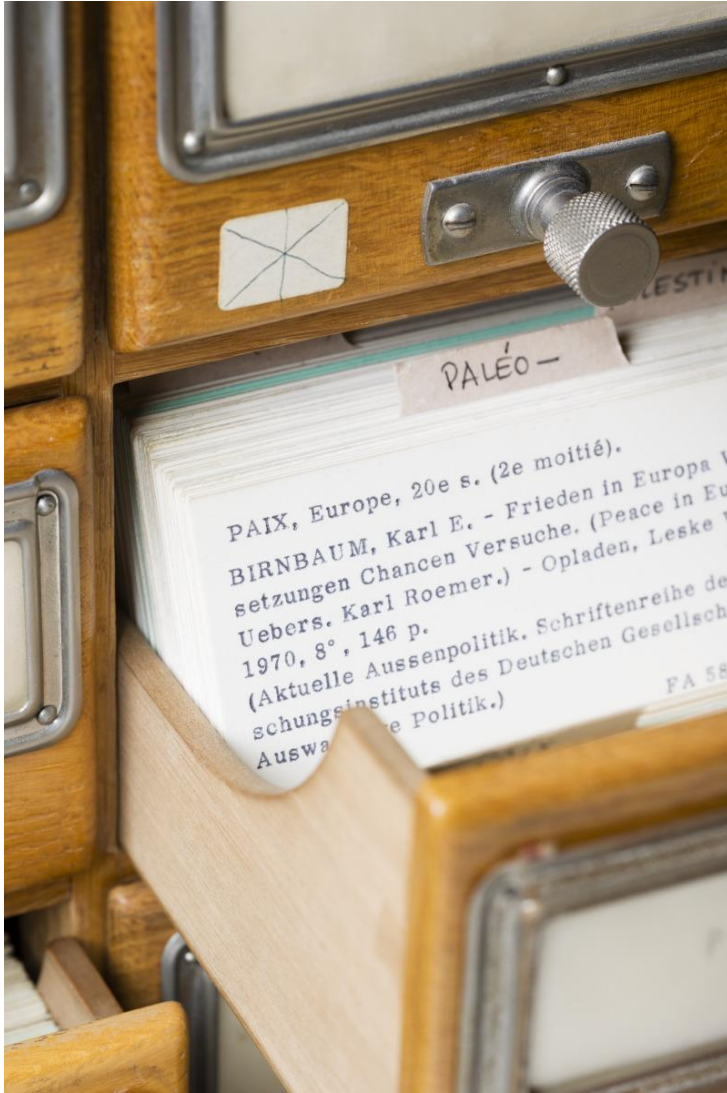 PALÉO-
PAIX, Europe, 20e s. (2e moitié).
BIRNBAUM, Karl E. - Frieden in Europa
setzungen Chancen Versuche. (Peace in
Uebers. Karl Roemer.) - Opladen, Leske
1970, 8°, 146 p.
(Aktuelle Aussenpolitik. Schriftenreihe
schungsinstituts des Deutschen
Politik.)
FA 58